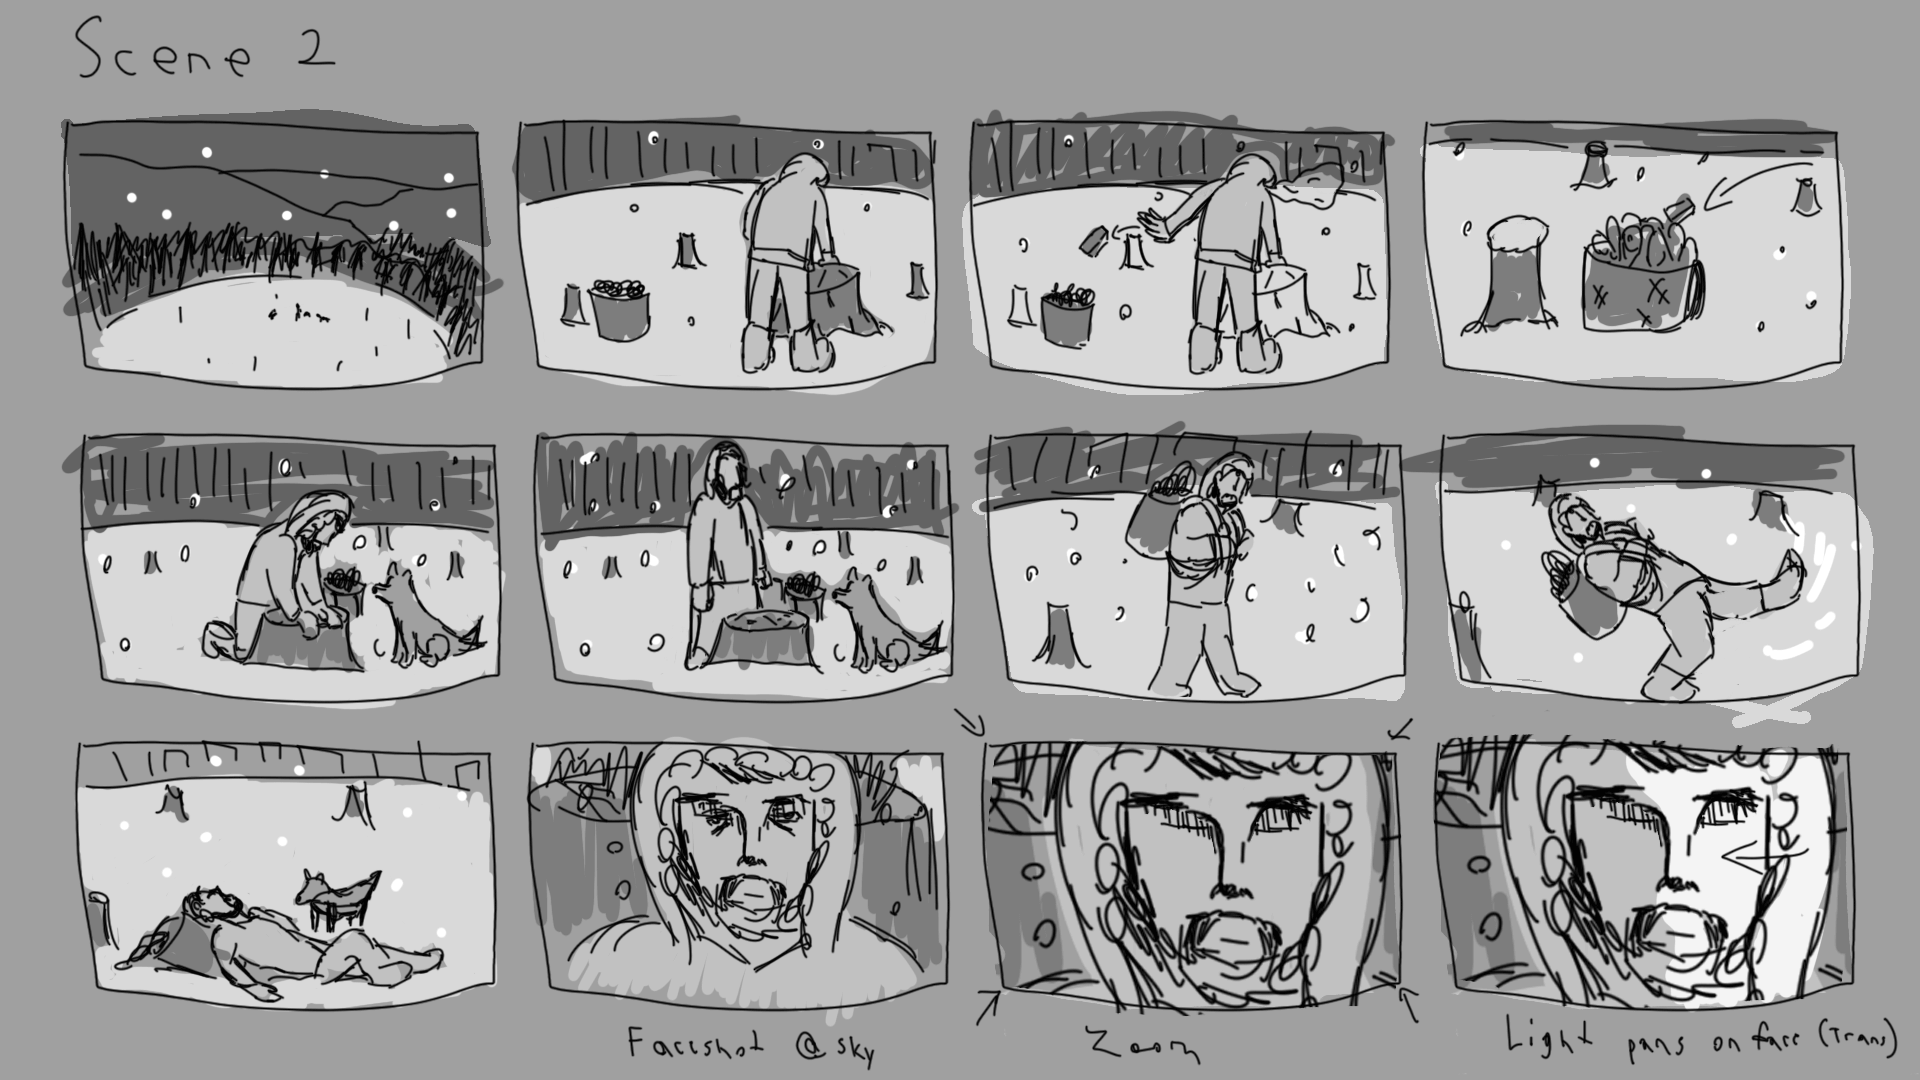 Scene 2
Faceshot @ sky
Zoom
Light pans on face (Trans)